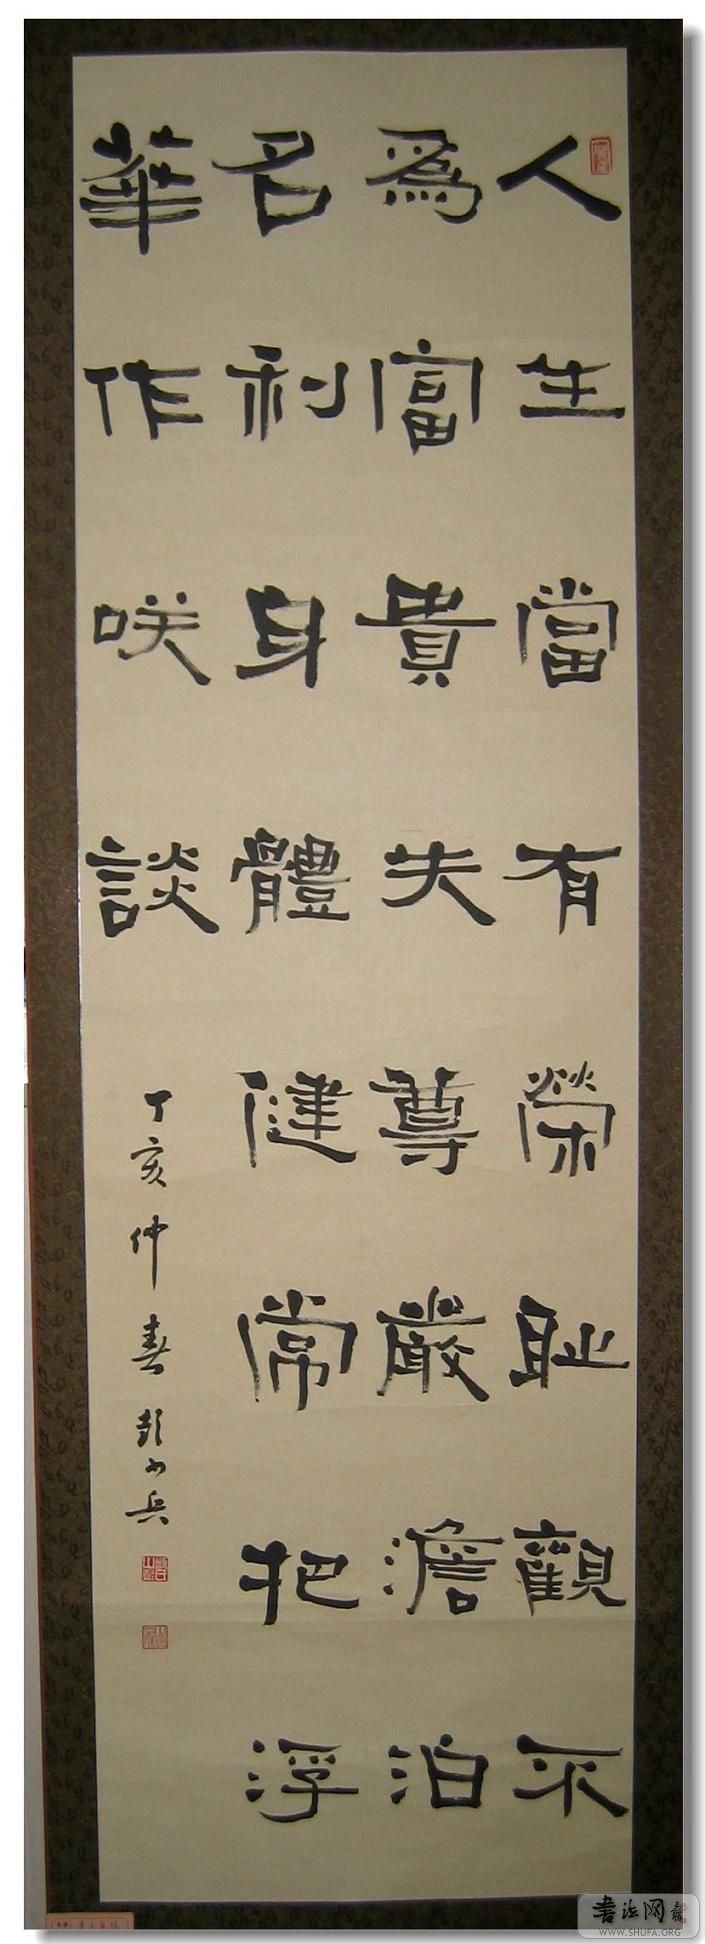 人生當有榮耻觀不
為富貴失尊嚴澹泊
名利身體健常把浮
華作咲談
丁亥仲春彭小兵
书法网
WWW.SHUFA.ORG